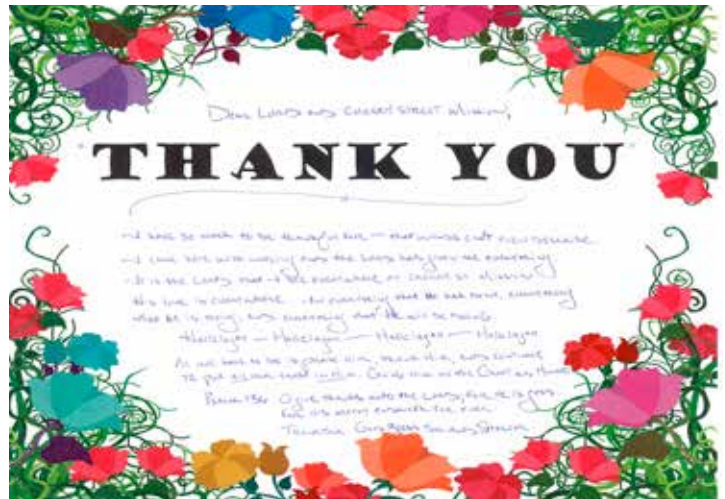 Dear Lord and Cherry Street Mission,
THANK YOU
I have so much to be thankful for — that words can't even describe.
I came here with nothing and the Lord has given me everything
It is the Lord that I see everywhere at Cherry St Mission
His love is everywhere. In everything that he has done, everything
that he is doing, and everything that he will be doing.
Hallelujah — Hallelujah — Hallelujah — Hallelujah
All we have to do is praise Him, thank Him, and continue
to put in Him. Give Him all the Glory and Honor
Psalm 136 O give thanks unto the Lord, for he is good
for his mercy endureth for ever.